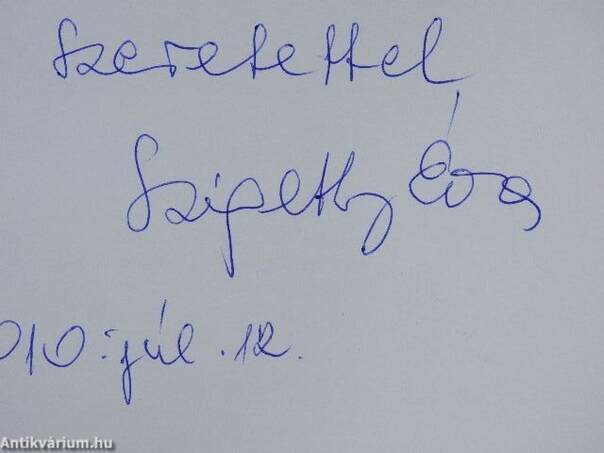 Szeretettel
Szigethy Éva
010. júl. 12.
Antikvárium.hu